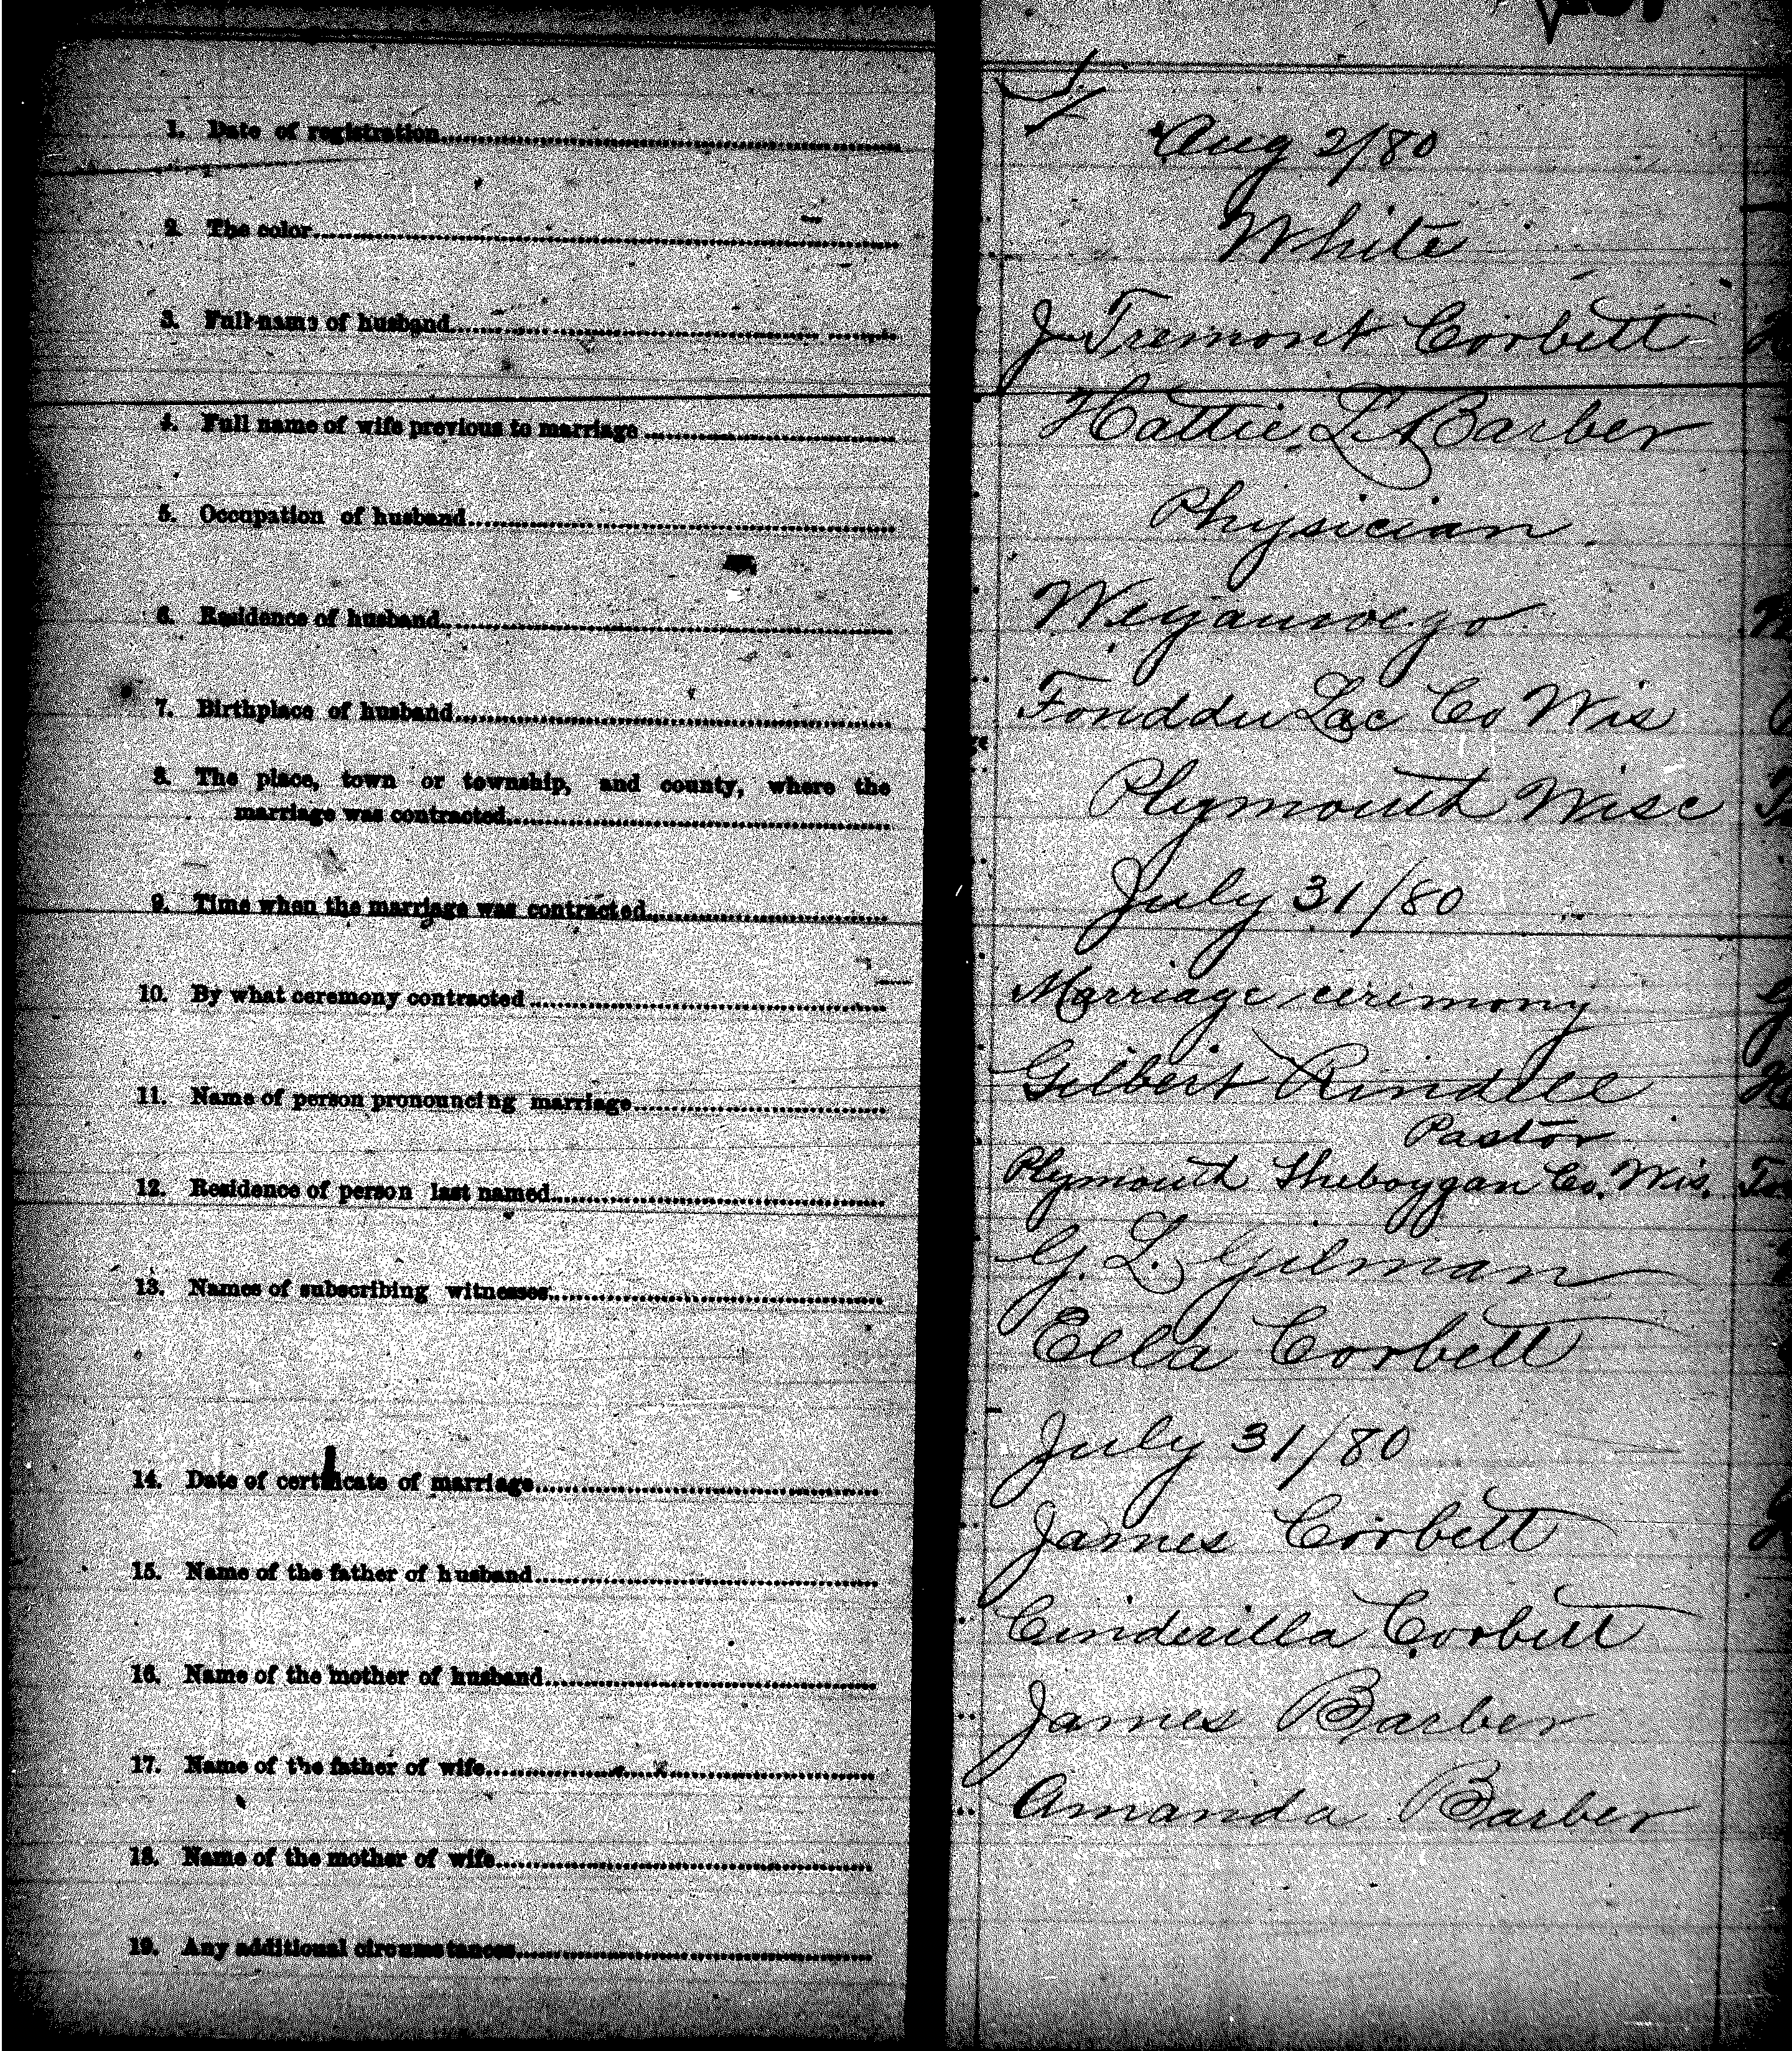 1. Date of registration Aug 2/80
2. The color White
3. Full name of husband J Tremont Corbett
4. Full name of wife previous to marriage Hattie L. Barber
5. Occupation of husband Physician.
6. Residence of husband Weyauwego
7. Birthplace of husband Fonddu Lac Co Wis
8. The place, town or township, and county, where the
marriage was contracted Plymouth Wisc
9. Time when the marriage was contracted July 31/80
10. By what ceremony contracted Marriage ceremony
11. Name of person pronouncing marriage Gilbert Rindell
Pastor
12. Residence of person last named Plymouth Sheboygan Co. Wis.
13. Names of subscribing witnesses G. L. Gilman
Ella Corbett
14. Date of certificate of marriage July 31/80
15. Name of the father of husband James Corbett
16. Name of the mother of husband Cinderilla Corbett
17. Name of the father of wife James Barber
18. Name of the mother of wife Amanda Barber
19. Any additional circumstances